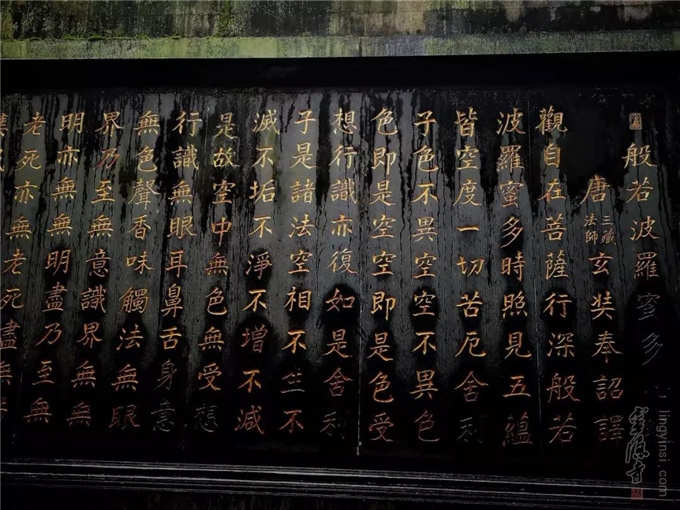 般若波羅蜜多
唐三藏法師玄奘奉詔譯
觀自在菩薩行深般若
波羅蜜多時照見五蘊
皆空度一切苦厄舍利
子色不異空空不異色
色即是空空即是色受
想行識亦復如是舍利
子是諸法空相不生不
滅不垢不淨不增不減
是故空中無色無受想
行識無眼耳鼻舌身意
無色聲香味觸法無眼
界乃至無意識界無無
明亦無無明盡乃至無
老死亦無老死盡無
靈隱寺
lingyinsi.com